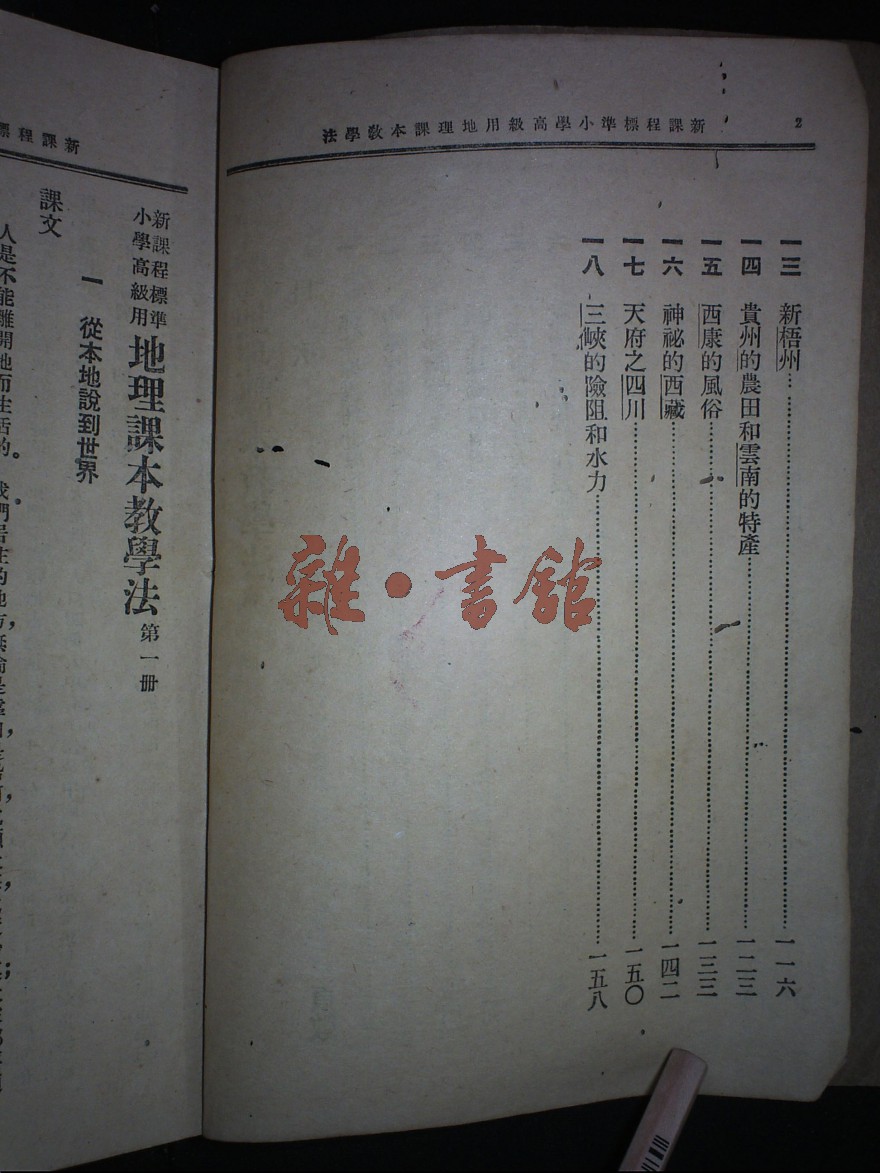 2 新課程標準小學高級用地理課本教學法
一三 新梧州……一一六
一四 貴州的農田和雲南的特產……一二三
一五 西康的風俗……一三三
一六 神祕的西藏……一四二
一七 天府之四川……一五〇
一八 三峽的險阻和水力……一五八
雜·書館
新課程標
新課程標準
小學高級用
地理課本教學法 第一册
一 從本地說到世界
課文
人是不能離開地而生活的。我們居住的地方，無論是